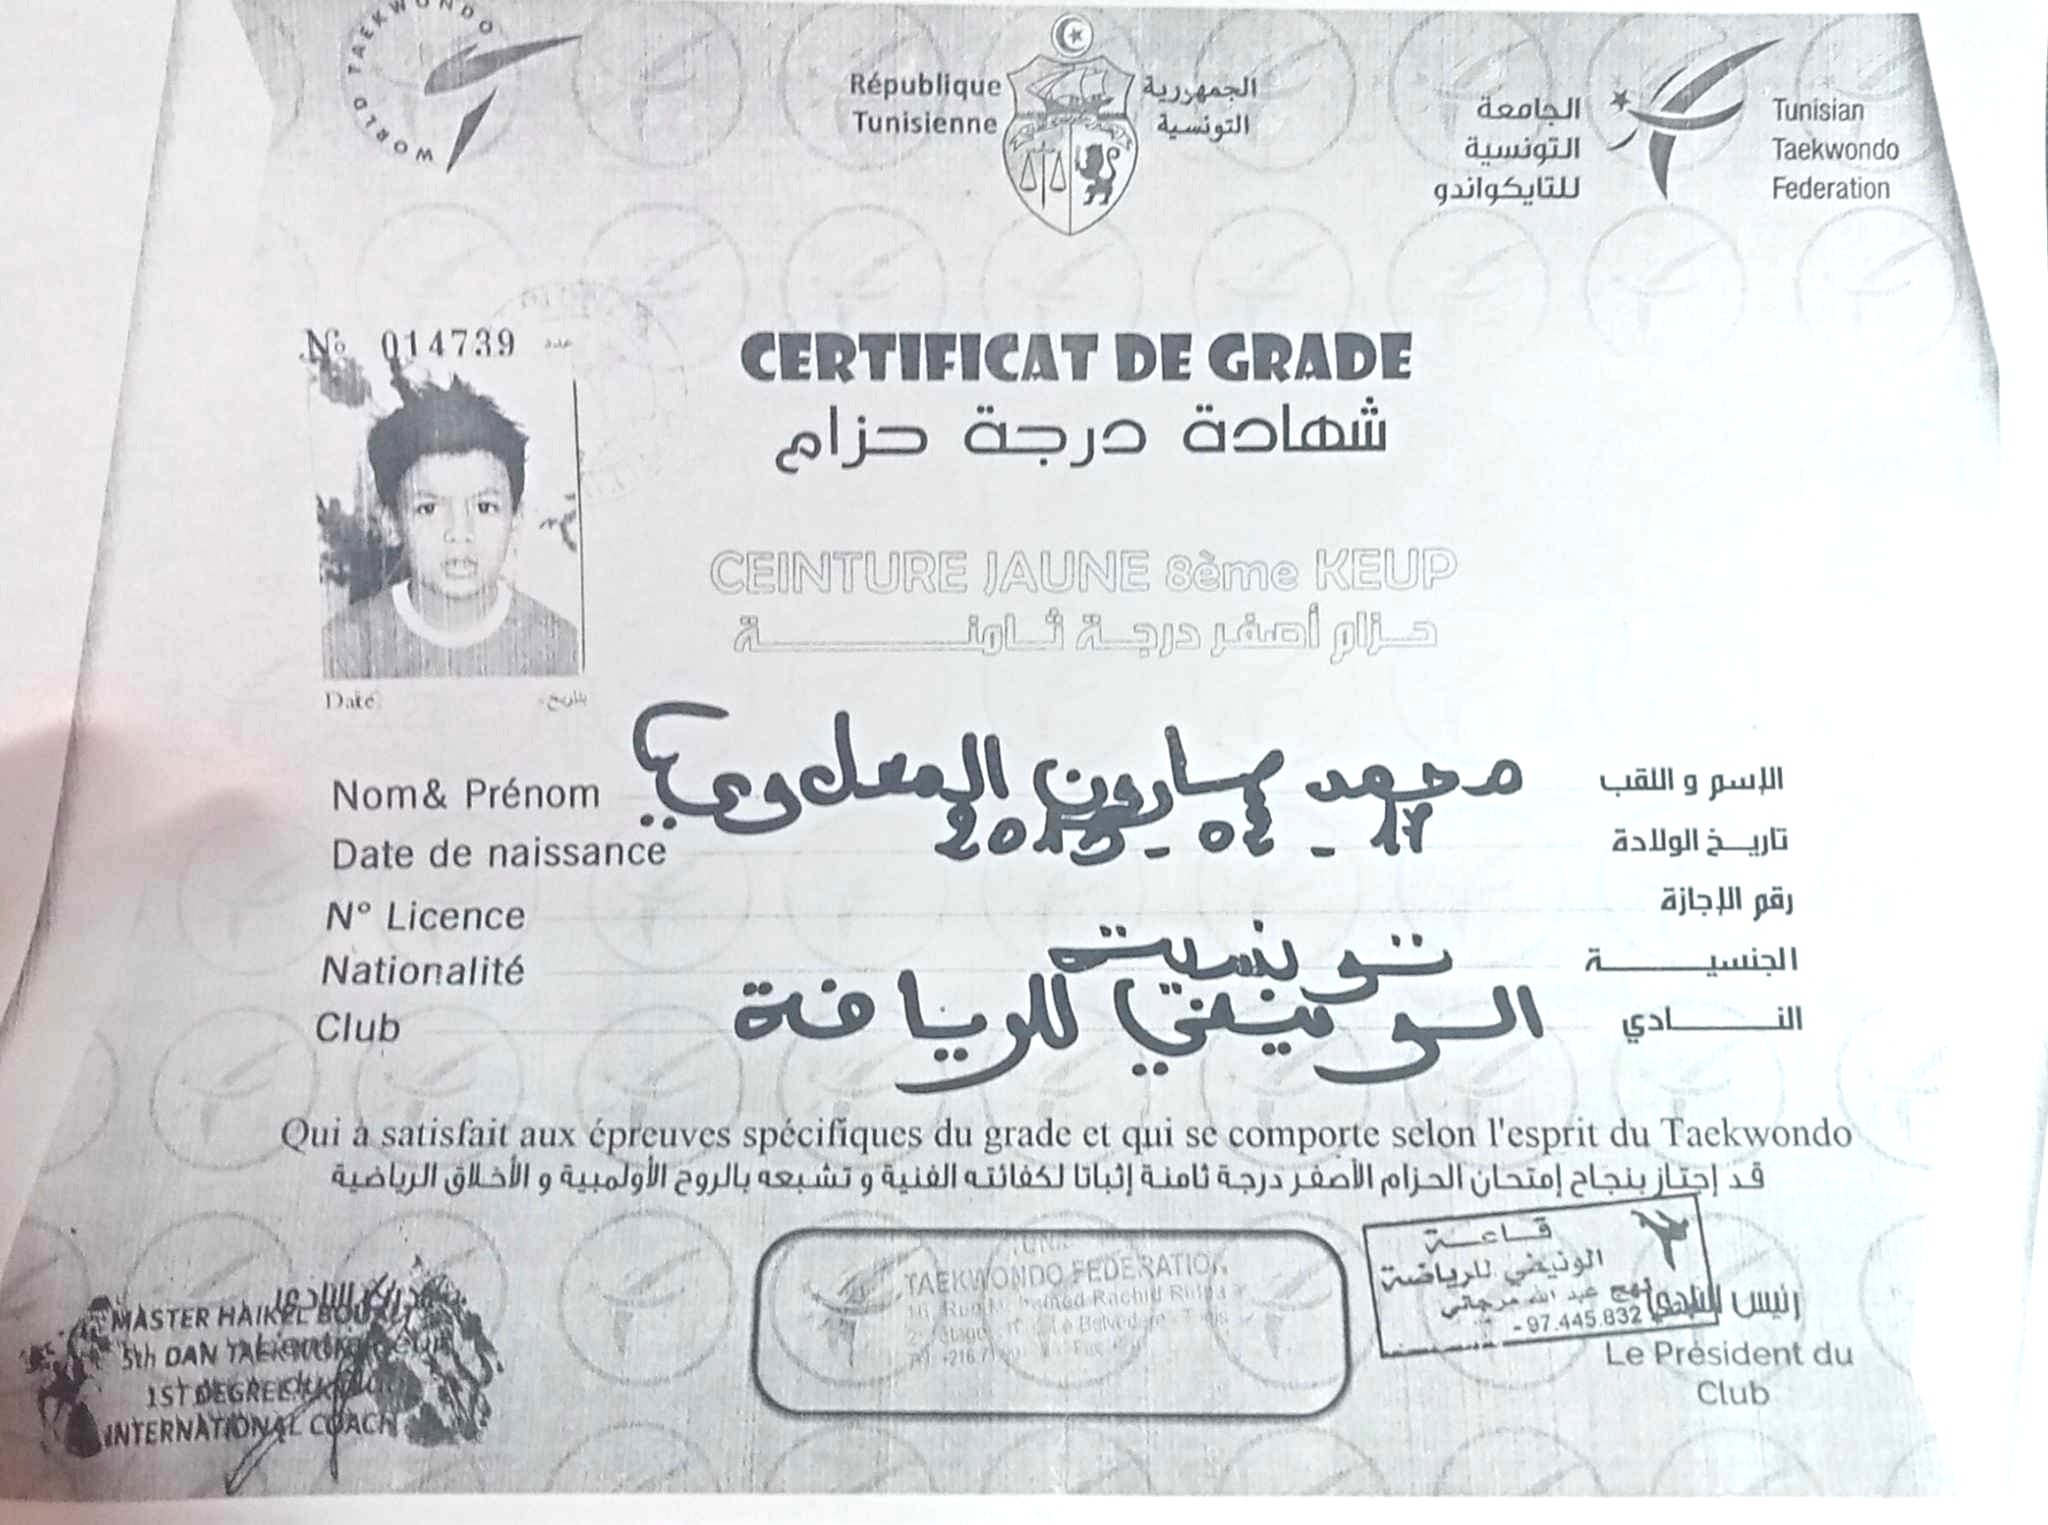 WORLD TAEKWONDO
République
Tunisienne
الجمهورية
التونسية
الجامعة
التونسية
للتايكواندو
Tunisian
Taekwondo
Federation
№ 014739 عدد
CERTIFICAT DE GRADE
شهادة درجة حزام
CEINTURE JAUNE 8ème KEUP
حزام أصفر درجة ثامنة
Date بتاريخ
Nom& Prénom محمد هارون الإسم و اللقب
Date de naissance 2013 - 02 - 17 تاريخ الولادة
N° Licence رقم الإجازة
Nationalité تونسية الجنسية
Club الونيفي للرياضة النادي
Qui a satisfait aux épreuves spécifiques du grade et qui se comporte selon l'esprit du Taekwondo
قد إجتاز بنجاح إمتحان الحزام الأصفر درجة ثامنة إثباتا لكفائته الفنية و تشبعه بالروح الأولمبية و الأخلاق الرياضية
MASTER HAIKEL
5th DAN
1ST DEGREE
INTERNATIONAL COACH
TAEKWONDO FEDERATION
Rue Mohamed Rachid Ridha
Le Belvédère
قاعة
الونيفي للرياضة
نهج عبد الله
97.445.832
رئيس النادي
Le Président du
Club